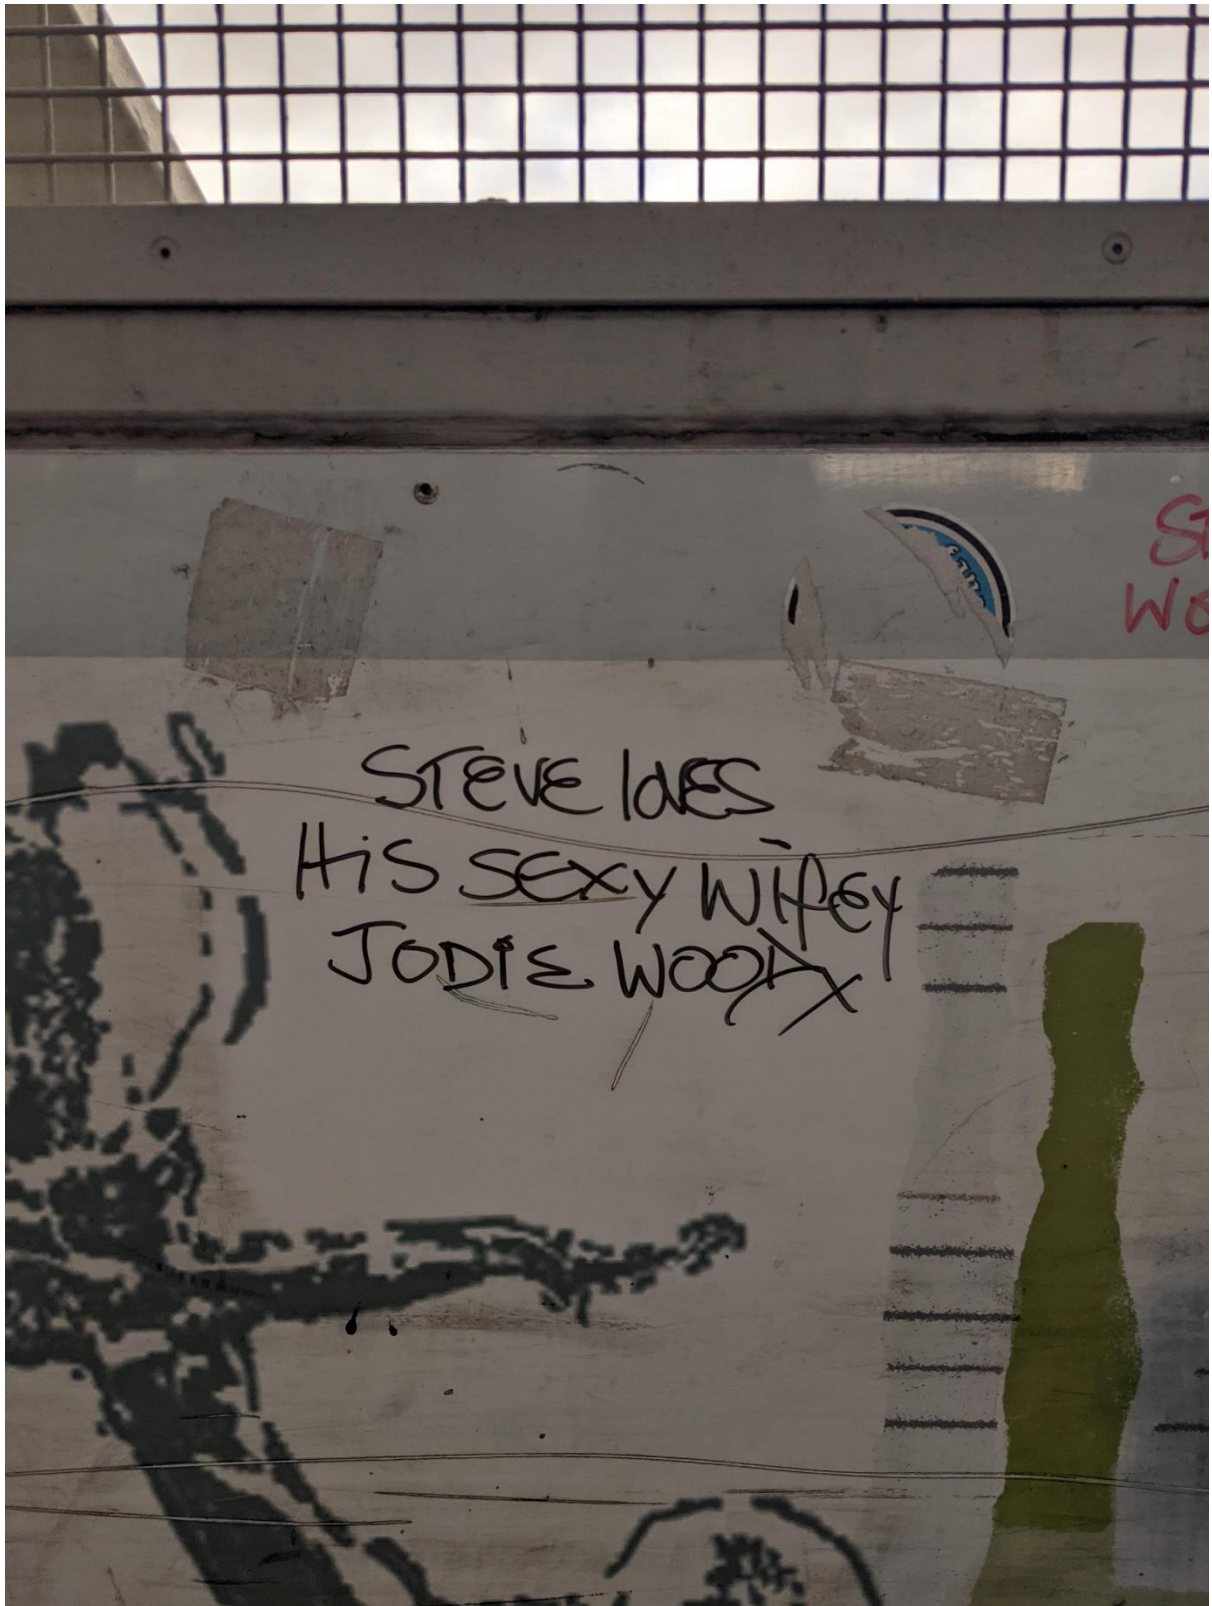 ST
WO
STEVE lOVES
HiS SEXY WifEY
JODiE WOODX